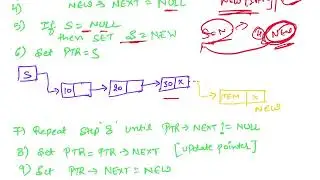 4) NEW → NEXT = NULL
5) If S = NULL
then SET S = NEW
S = N
NEW
6) Set PTR = S
S
10
20
30 X
ITEM X
NEW
7) Repeat Step '8' until PTR → NEXT != NULL
8) Set PTR = PTR → NEXT [update pointer]
9) Set PTR → NEXT = NEW